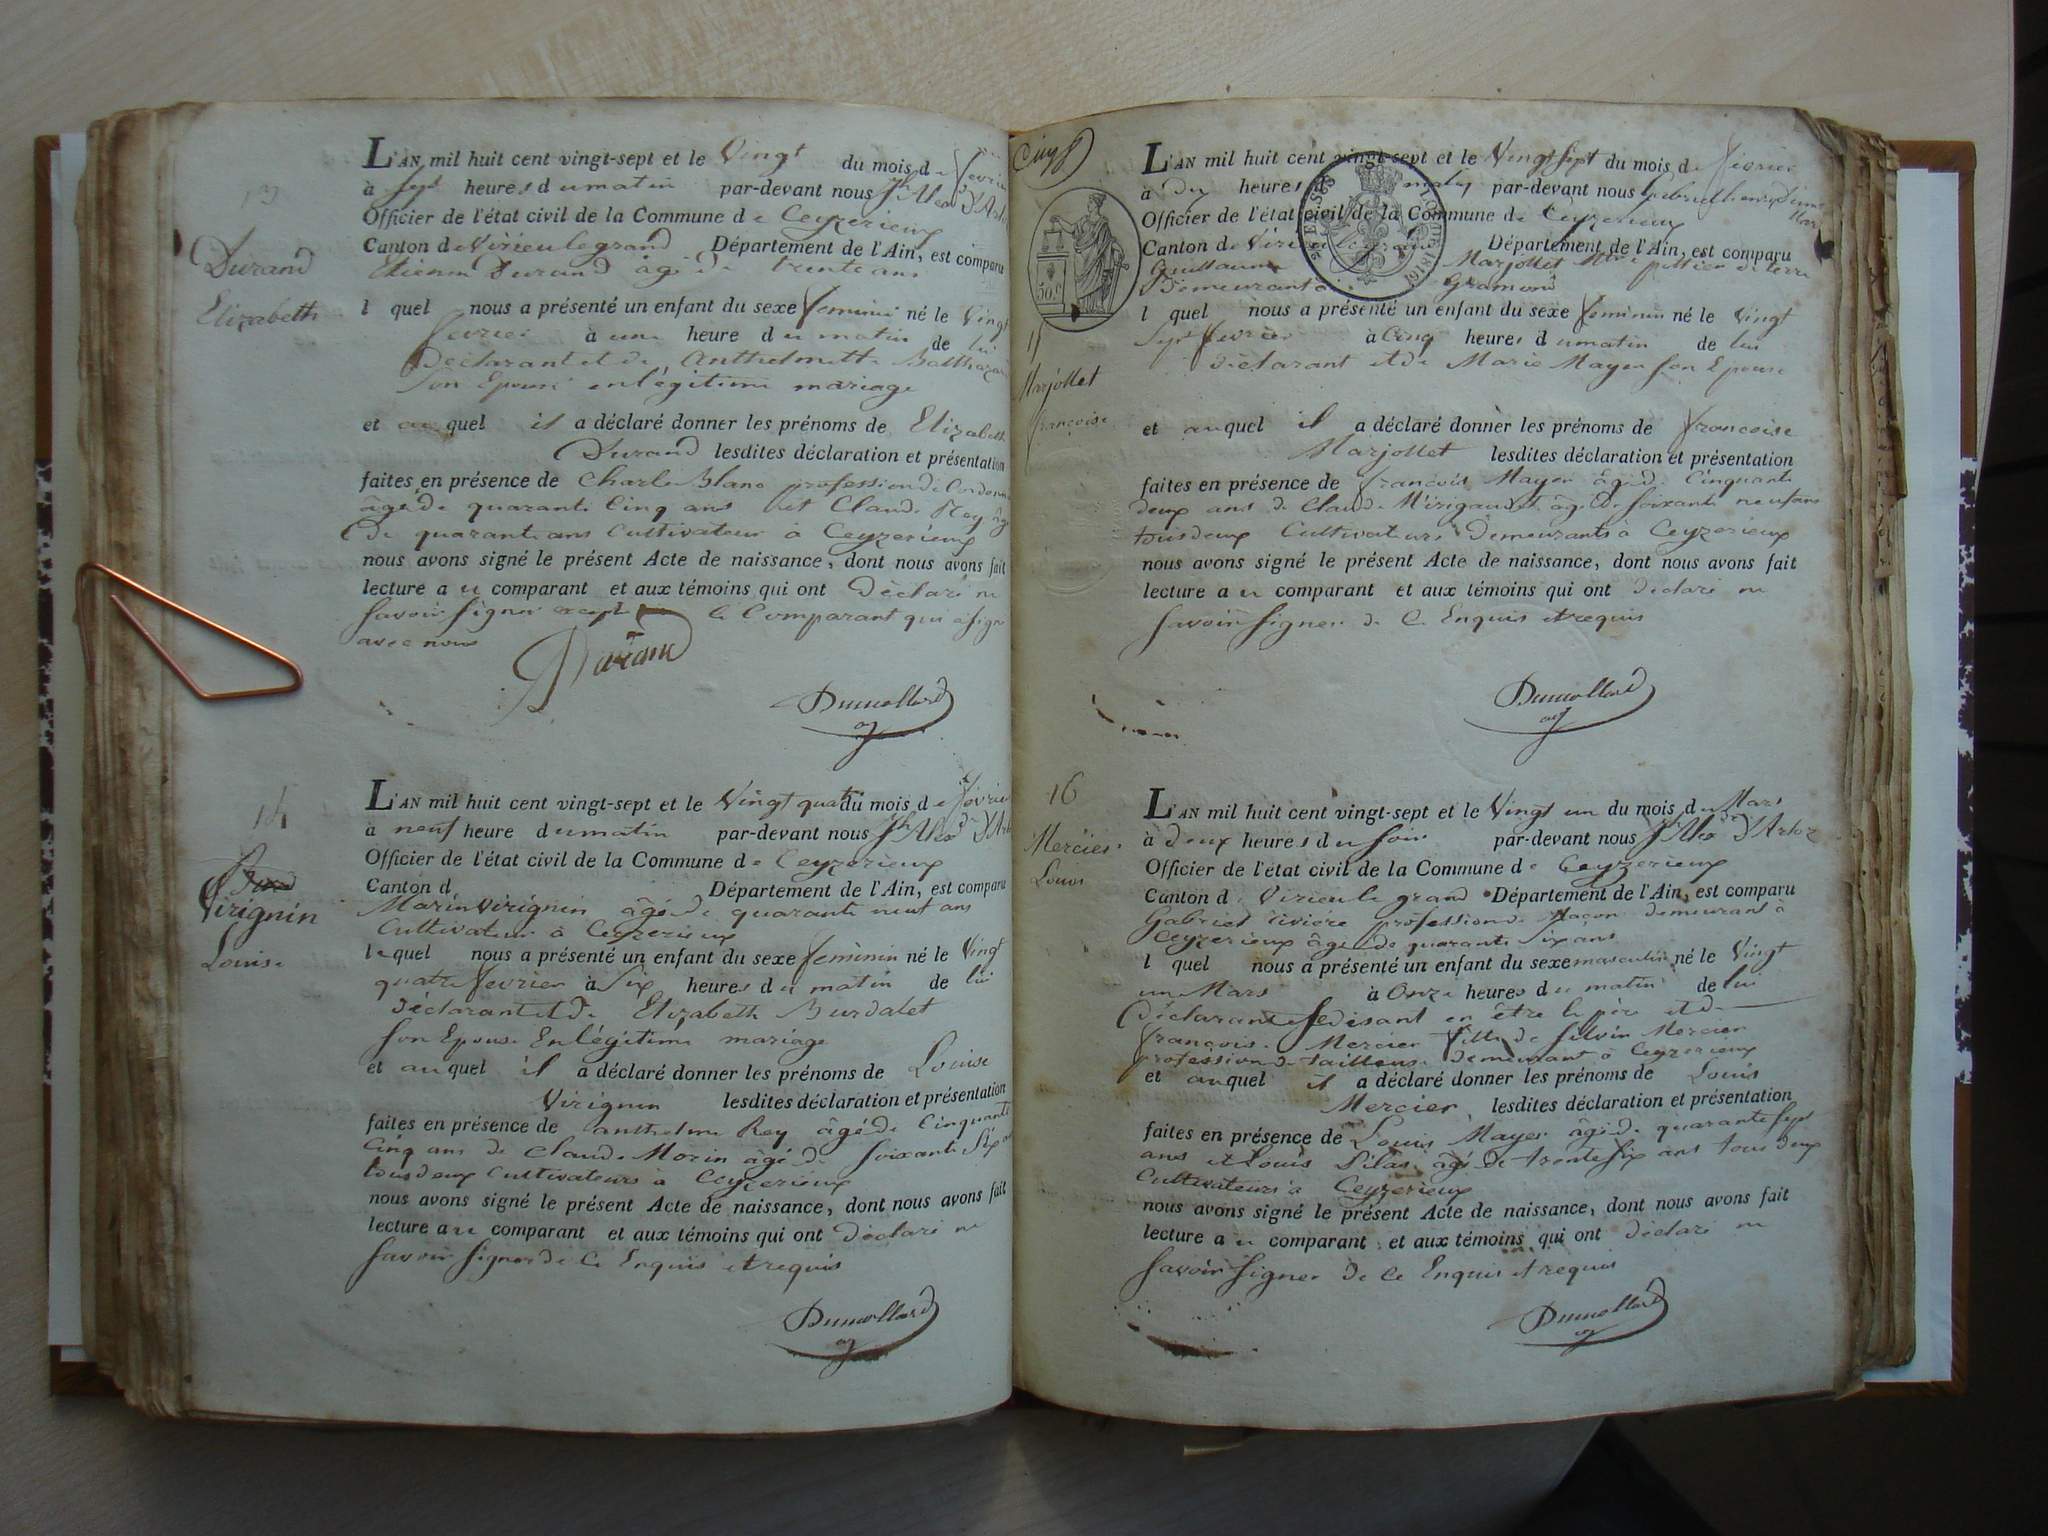 13
Durand
Elizabeth
L'AN mil huit cent vingt-sept et le Vingt du mois de fevrier
à sept heures du matin par-devant nous
Officier de l'état civil de la Commune de Ceyzerieux
Canton de Virieulegrand Département de l'Ain, est comparu
Etienne Durand âgé de trente ans
l quel nous a présenté un enfant du sexe feminin né le Vingt
fevrier à une heure du matin de lui
Déclarant et de Anthelmette Balthazar
son Epouse en légitime mariage
et au quel il a déclaré donner les prénoms de Elizabeth
Durand lesdites déclaration et présentation
faites en présence de Charle Blanc profession de Cordonn
âgé de quarante Cinq ans et Claude Rey âgé
de quarante ans Cultivateur à Ceyzerieux
nous avons signé le présent Acte de naissance, dont nous avons fait
lecture au comparant et aux témoins qui ont Déclaré ne
savoir signer excepté le Comparant qui a signé
avec nous
Durand
Dumollard
14
Virignin
Louise
L'AN mil huit cent vingt-sept et le Vingt quatre du mois de fevrier
à neuf heure du matin par-devant nous
Officier de l'état civil de la Commune de Ceyzerieux
Canton d Département de l'Ain, est comparu
Marin Virignin âgé de quarante neuf ans
Cultivateur à Ceyzerieux
lequel nous a présenté un enfant du sexe feminin né le Vingt
quatre fevrier à Six heures du matin de lui
déclarant et de Elizabeth Burdalet
son Epouse En légitime mariage
et au quel il a déclaré donner les prénoms de Louise
Virignin lesdites déclaration et présentation
faites en présence de anthelme Rey âgé de Cinquante
Cinq ans de Claude Morin âgé de soixante Six ans
tous deux Cultivateurs à Ceyzerieux
nous avons signé le présent Acte de naissance, dont nous avons fait
lecture au comparant et aux témoins qui ont déclaré ne
savoir signer de Ce Enquis et requis
Dumollard
50.c
15
Marjollet
françoise
L'AN mil huit cent vingt-sept et le Vingt sept du mois de fevrier
à dix heures matin par-devant nous
Officier de l'état civil de la Commune de Ceyzerieux
Canton de Virieu le grand Département de l'Ain, est comparu
Guillaume Marjollet pottier de terre
Demeurant à Gramond
l quel nous a présenté un enfant du sexe feminin né le vingt
sept fevrier à Cinq heures du matin de lui
déclarant et de Marie Mayer son Epouse
et au quel il a déclaré donner les prénoms de francoise
Marjollet lesdites déclaration et présentation
faites en présence de francois Mayer âgé de Cinquante
deux ans de Claude Mirigaud âgé de soixante neuf ans
tous deux Cultivateurs Demeurants à Ceyzerieux
nous avons signé le présent Acte de naissance, dont nous avons fait
lecture au comparant et aux témoins qui ont déclaré ne
savoir signer de Ce Enquis et requis
Dumollard
16
Mercier
Louis
L'AN mil huit cent vingt-sept et le Vingt un du mois de Mars
à deux heures du soir par-devant nous
Officier de l'état civil de la Commune de Ceyzerieux
Canton de Virieu le grand Département de l'Ain, est comparu
Gabriel Civière profession de Maçon demeurant à
Ceyzerieux âgé de quarante Six ans
l quel nous a présenté un enfant du sexe masculin né le Vingt
un Mars à Onze heures du matin de lui
Déclarant se disant en être le père et de
françoise Mercier fille de Silvin Mercier
profession de tailleur demeurant à Ceyzerieux
et au quel il a déclaré donner les prénoms de Louis
Mercier lesdites déclaration et présentation
faites en présence de Louis Mayer âgé de quarante sept
ans et Louis Pilas âgé de trente six ans tous deux
Cultivateurs à Ceyzerieux
nous avons signé le présent Acte de naissance, dont nous avons fait
lecture au comparant et aux témoins qui ont déclaré ne
savoir signer de Ce Enquis et requis
Dumollard